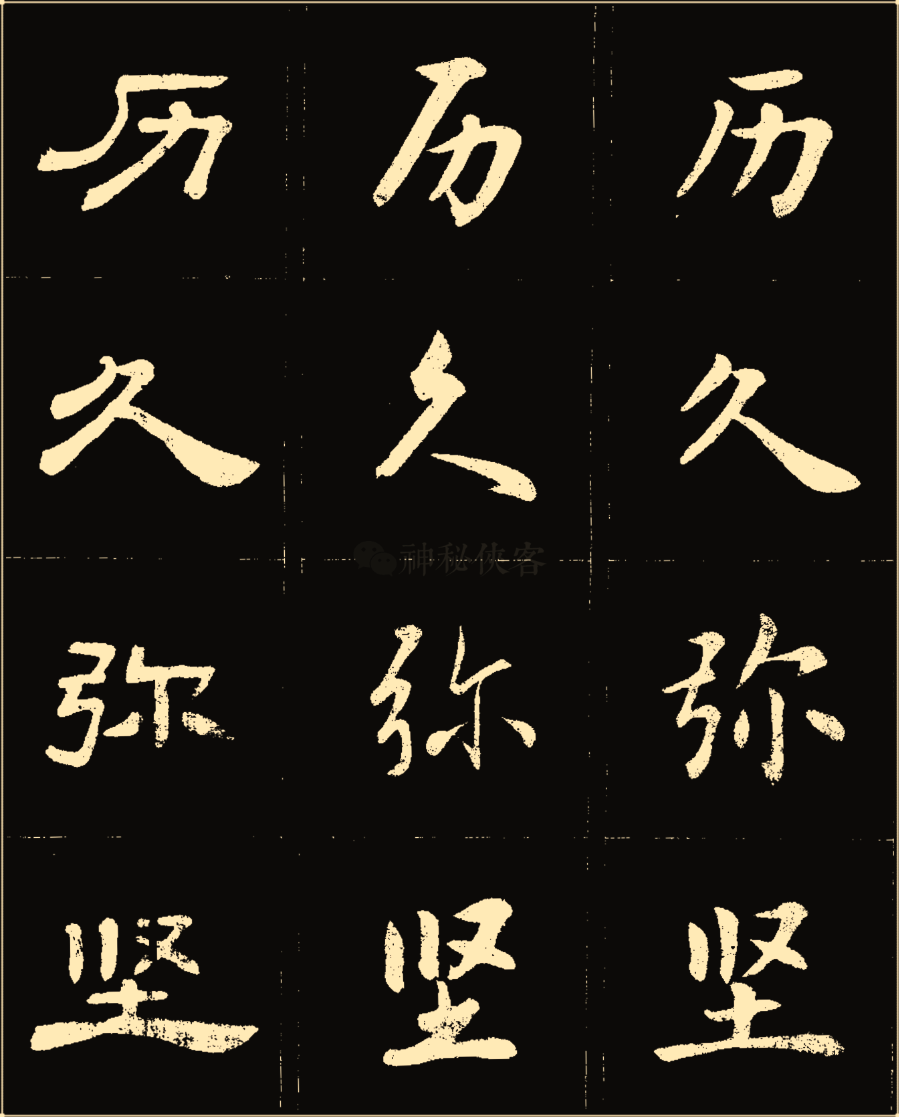 历 历 历
久 久 久
神秘侠客
弥 弥 弥
坚 坚 坚